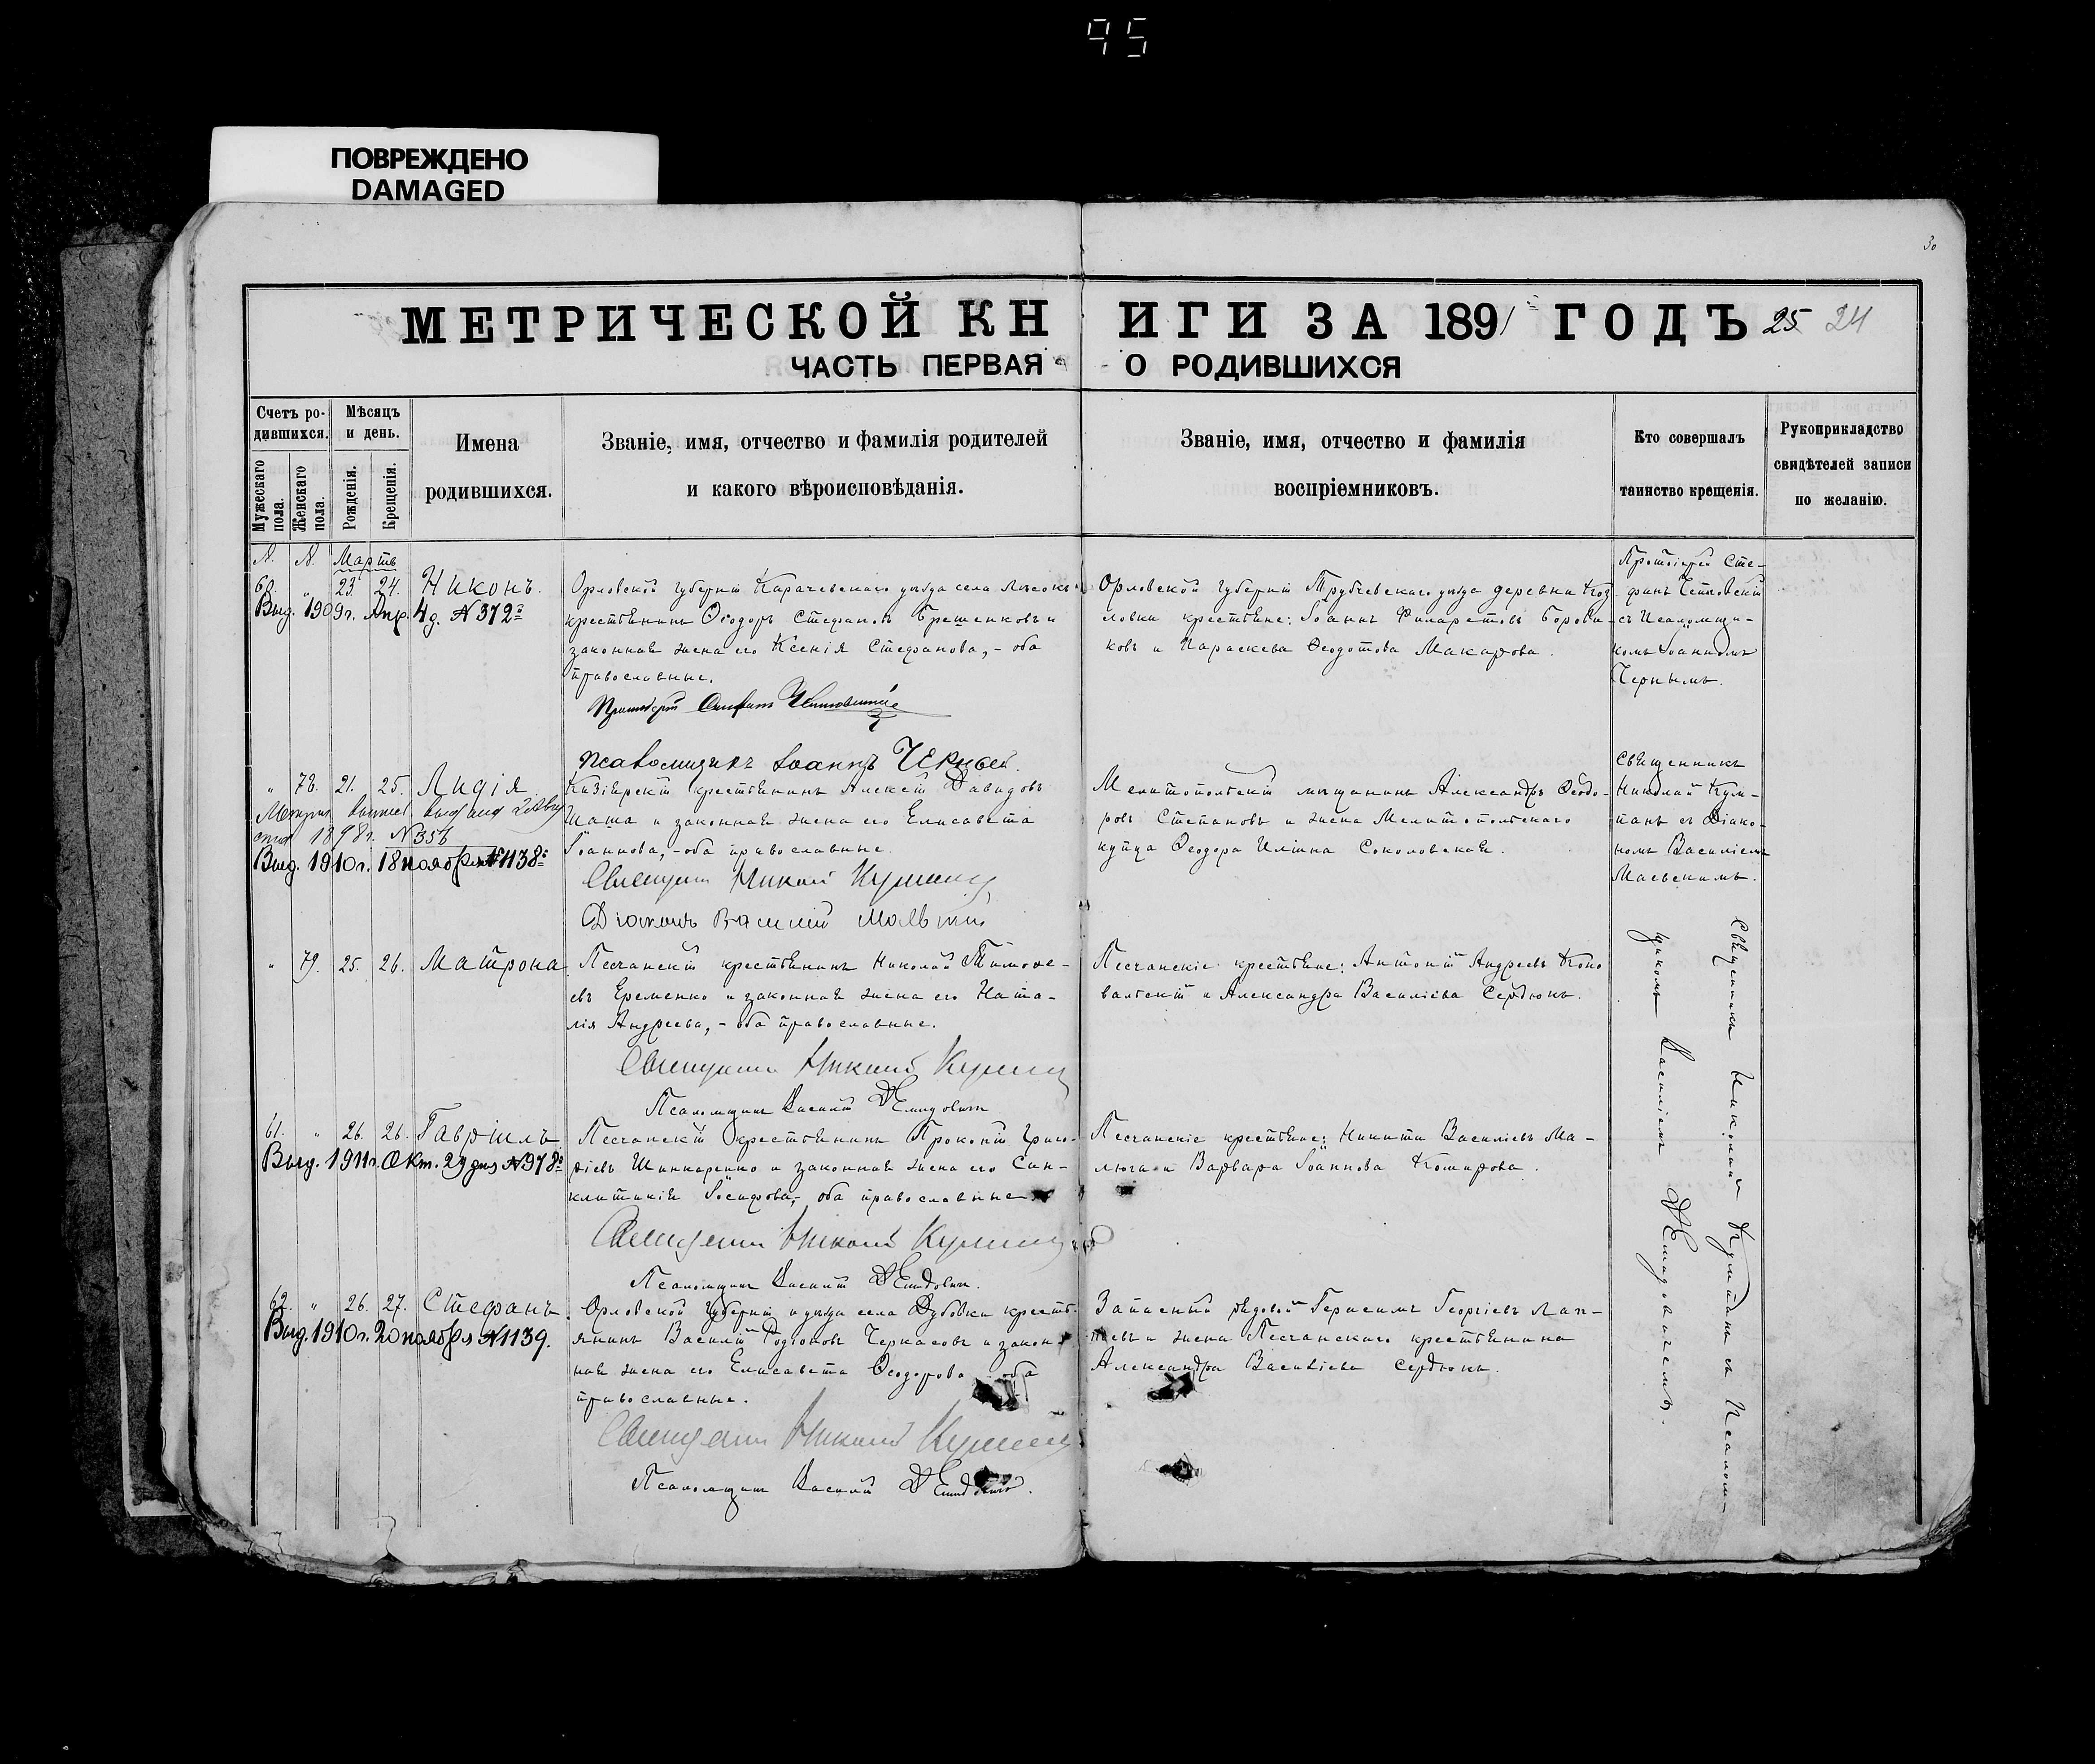 95
ПОВРЕЖДЕНО
DAMAGED
30
МЕТРИЧЕСКОЙ КНИГИ ЗА 1891 ГОДЪ 25 24
ЧАСТЬ ПЕРВАЯ - О РОДИВШИХСЯ
Счетъ родившихся.
Мужескаго пола.
Женскаго пола.
Мѣсяцъ и день.
Рожденія.
Крещенія.
Имена
родившихся.
Званіе, имя, отчество и фамилія родителей
и какого вѣроисповѣданія.
Званіе, имя, отчество и фамилія
воспріемниковъ.
Кто совершалъ
таинство крещенія.
Рукоприкладство
свидѣтелей записи
по желанію.
№. №. Мартъ
60. " 23. 24. Никонъ.
Выд. 1909г. Апр. 4д. №372
Орловской губерніи Карачевскаго уѣзда села
крестьянинъ Ѳеодоръ Стефановъ Брешенковъ и
законная жена его Ксенія Стефанова, - оба
православные.
Протоіерей Стефанъ
Псаломщикъ Іоаннъ Черный.
Орловской губерніи Трубчевскаго уѣзда деревни Коз-
ловки крестьяне: Іоаннъ Филаретовъ Борови-
ковъ и Параскева Ѳеодотова Макарова.
Протоіерей Сте-
фанъ
съ Псаломщи-
комъ Іоанномъ
Чернымъ.
" 78. 21. 25. Лидія
Метрич. выпись выдана
1898г. №356
Выд. 1910г. 18 ноября №1138
Кизіярскій крестьянинъ Алексій Давидовъ
Шаша и законная жена его Елисавета
Іоаннова, - оба православные.
Священникъ Николай Курипанъ
Діаконъ Василій
Мелитопольскій мѣщанинъ Александръ Ѳеодо-
ровъ Степановъ и жена Мелитопольскаго
купца Ѳеодора Иліина Соколовская.
Священникъ
Николай
съ Діако-
номъ Василіемъ
Маевскимъ.
" 79. 25. 26. Матрона
Песчанскій крестьянинъ Николай Тимоѳе-
евъ Еременко и законная жена его Ната-
лія Андреева, - оба православные.
Священникъ Николай
Псаломщикъ Василій Демидовичъ
Песчанскіе крестьяне: Антоній Андреевъ Коно-
вальскій и Александра Василіева Сердюкъ.
Священникъ Николай съ Псалом-
щикомъ Василіемъ Демидовичемъ.
61. " 26. 26. Гавріилъ
Выд. 1911г. Окт. 29 дня №978
Песчанскій крестьянинъ Прокопій Григо-
ріевъ Шинкаренко и законная жена его Син-
клитикія Іосифова, - оба православные
Священникъ Николай
Псаломщикъ Василій Демидовичъ.
Песчанскіе крестьяне: Никита Василіевъ Ма-
люга и Варвара Іоаннова Комарова.
62. " 26. 27. Стефанъ
Выд. 1910г. 20 ноября №1139.
Орловской губерніи и уѣзда села Дубовки кресть-
янинъ Василій Родіоновъ Черкасовъ и закон-
ная жена его Елисавета Ѳеодорова, - оба
православные.
Священникъ Николай
Псаломщикъ Василій Демидовичъ.
Запасный рядовой Герасимъ Георгіевъ Лап-
и жена Песчанскаго крестьянина
Александра Василіева Сердюкъ.